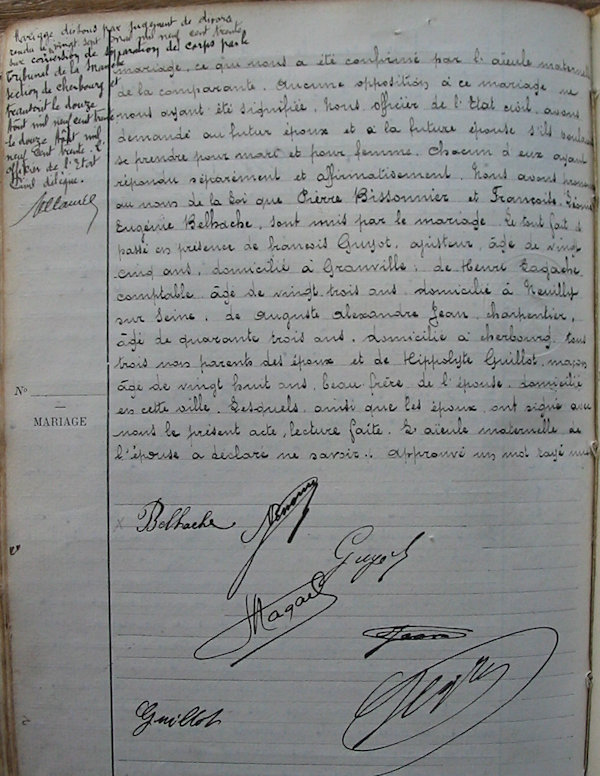 dissous par jugement de divorce
rendu le vingt sept mil neuf cent trente
sur conversion de séparation de corps par le
Tribunal de la Manche
section de Cherbourg
transcrit le douze
Août mil neuf cent trente
le douze Août mil
neuf cent trente. L'
officier de l'Etat
Civil délégué.
mariage, ce que nous a été confirmé par l'aïeule maternelle
de la comparante. Aucune opposition à ce mariage ne
nous ayant été signifiée. Nous officier de l'Etat civil, avons
demandé au futur époux et à la future épouse s'ils voulaient
se prendre pour mari et pour femme. Chacun d'eux ayant
répondu séparément et affirmativement. Nous avons prononcé
au nom de la loi que Pierre Bissonnier et Françoise
Eugénie Belhache, sont unis par le mariage. Le tout fait et
passé en présence de françois Guyot, ajusteur, âgé de vingt
cinq ans, domicilié à Granville; de Henri Lagache
comptable âgé de vingt trois ans domicilié à Neuilly
sur Seine, de Auguste Alexandre Jean, charpentier,
âgé de quarante trois ans, domicilié à Cherbourg, tous
trois non parents des époux et de Hippolyte Guillot, maçon
âgé de vingt huit ans, beau frère de l'épouse, domicilié
en cette ville. Lesquels, ainsi que les époux, ont signé avec
nous le présent acte, lecture faite. L'aïeule maternelle de
l'épouse a déclaré ne savoir. Approuvé un mot rayé nul
No
MARIAGE
Belhache
Guyot
Jean
Guillot